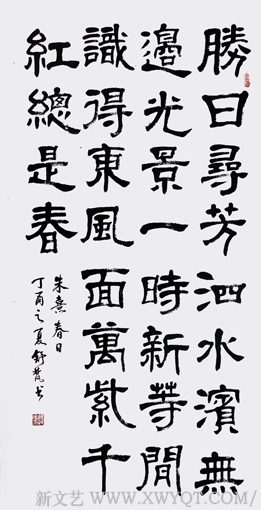 勝日尋芳泗水濱無
邊光景一時新等閒
識得東風面萬紫千
紅總是春
朱熹春日
丁酉之夏舒書
新文艺 WWW.XWYQT.COM